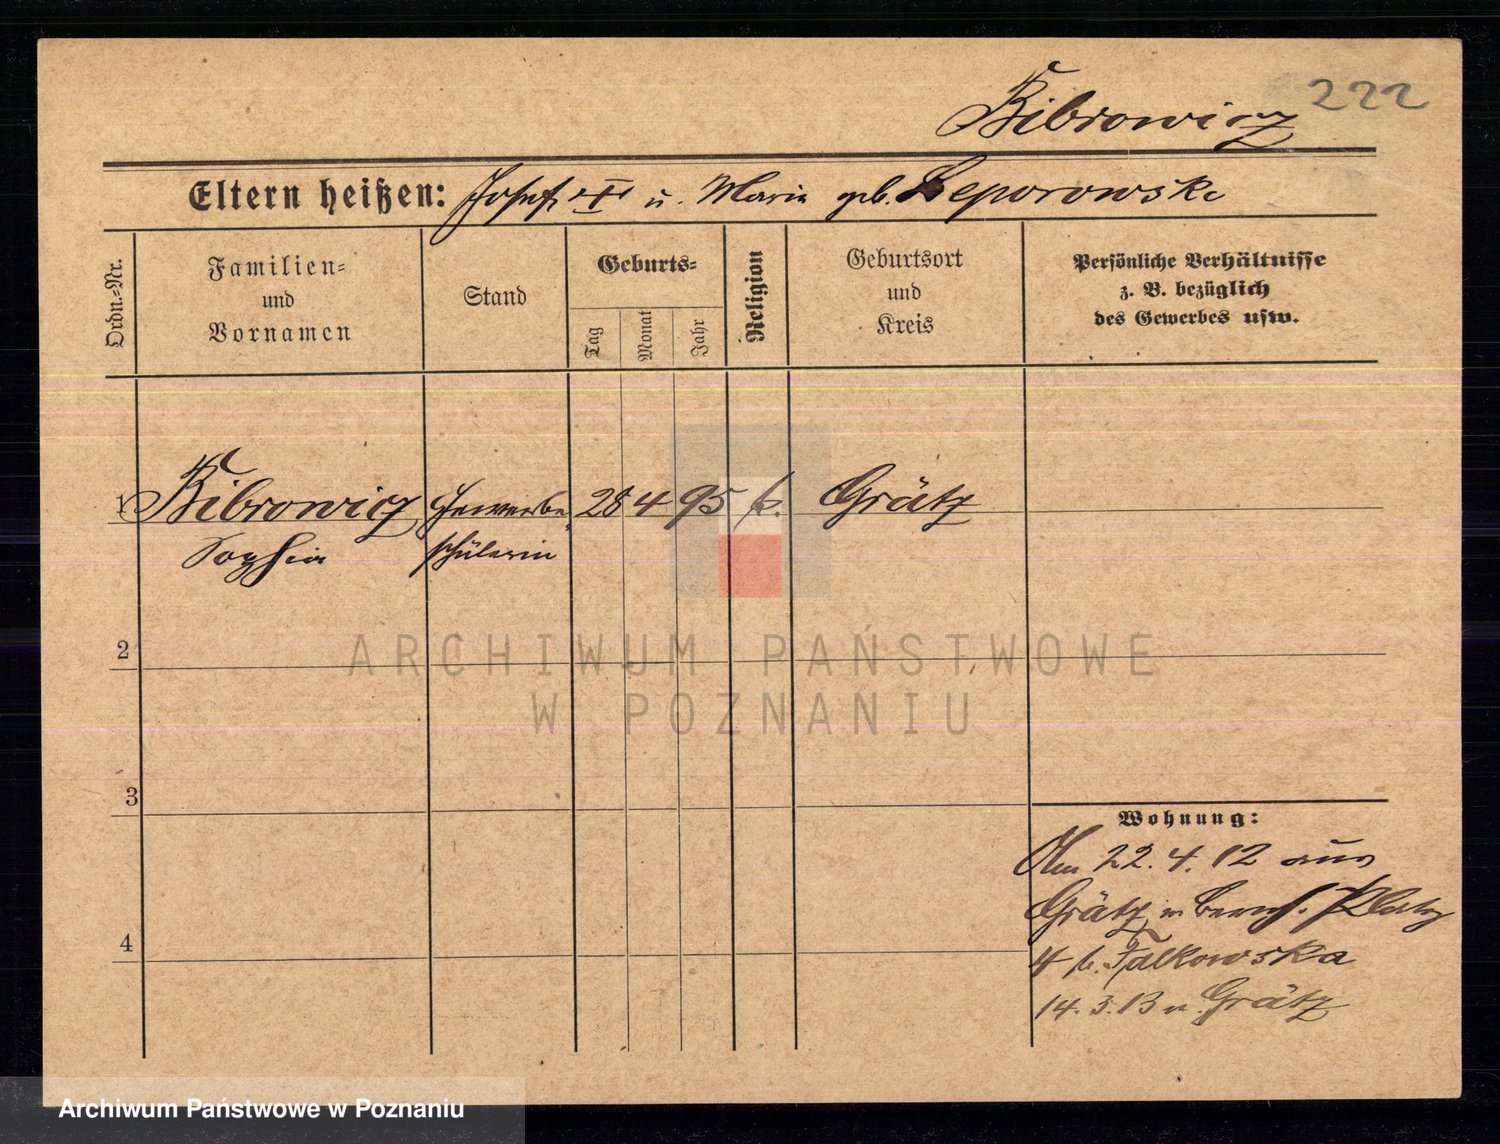 222
Bibrowicz
Eltern heißen: Josef u. Maria geb. Leporowska
Ordn.-Nr.
Familien-
und
Vornamen
Stand
Geburts-
Tag
Monat
Jahr
Religion
Geburtsort
und
Kreis
Persönliche Verhältnisse
z. B. bezüglich
des Gewerbes usw.
1 Bibrowicz Gewerbe 28 4 95 k. Grätz
Sophia schülerin
2
3
4
Wohnung:
Am 22. 4. 12 aus
Grätz Platz
4 b. Falkowska
14. 3. 13 n. Grätz
ARCHIWUM PAŃSTWOWE
W POZNANIU
Archiwum Państwowe w Poznaniu